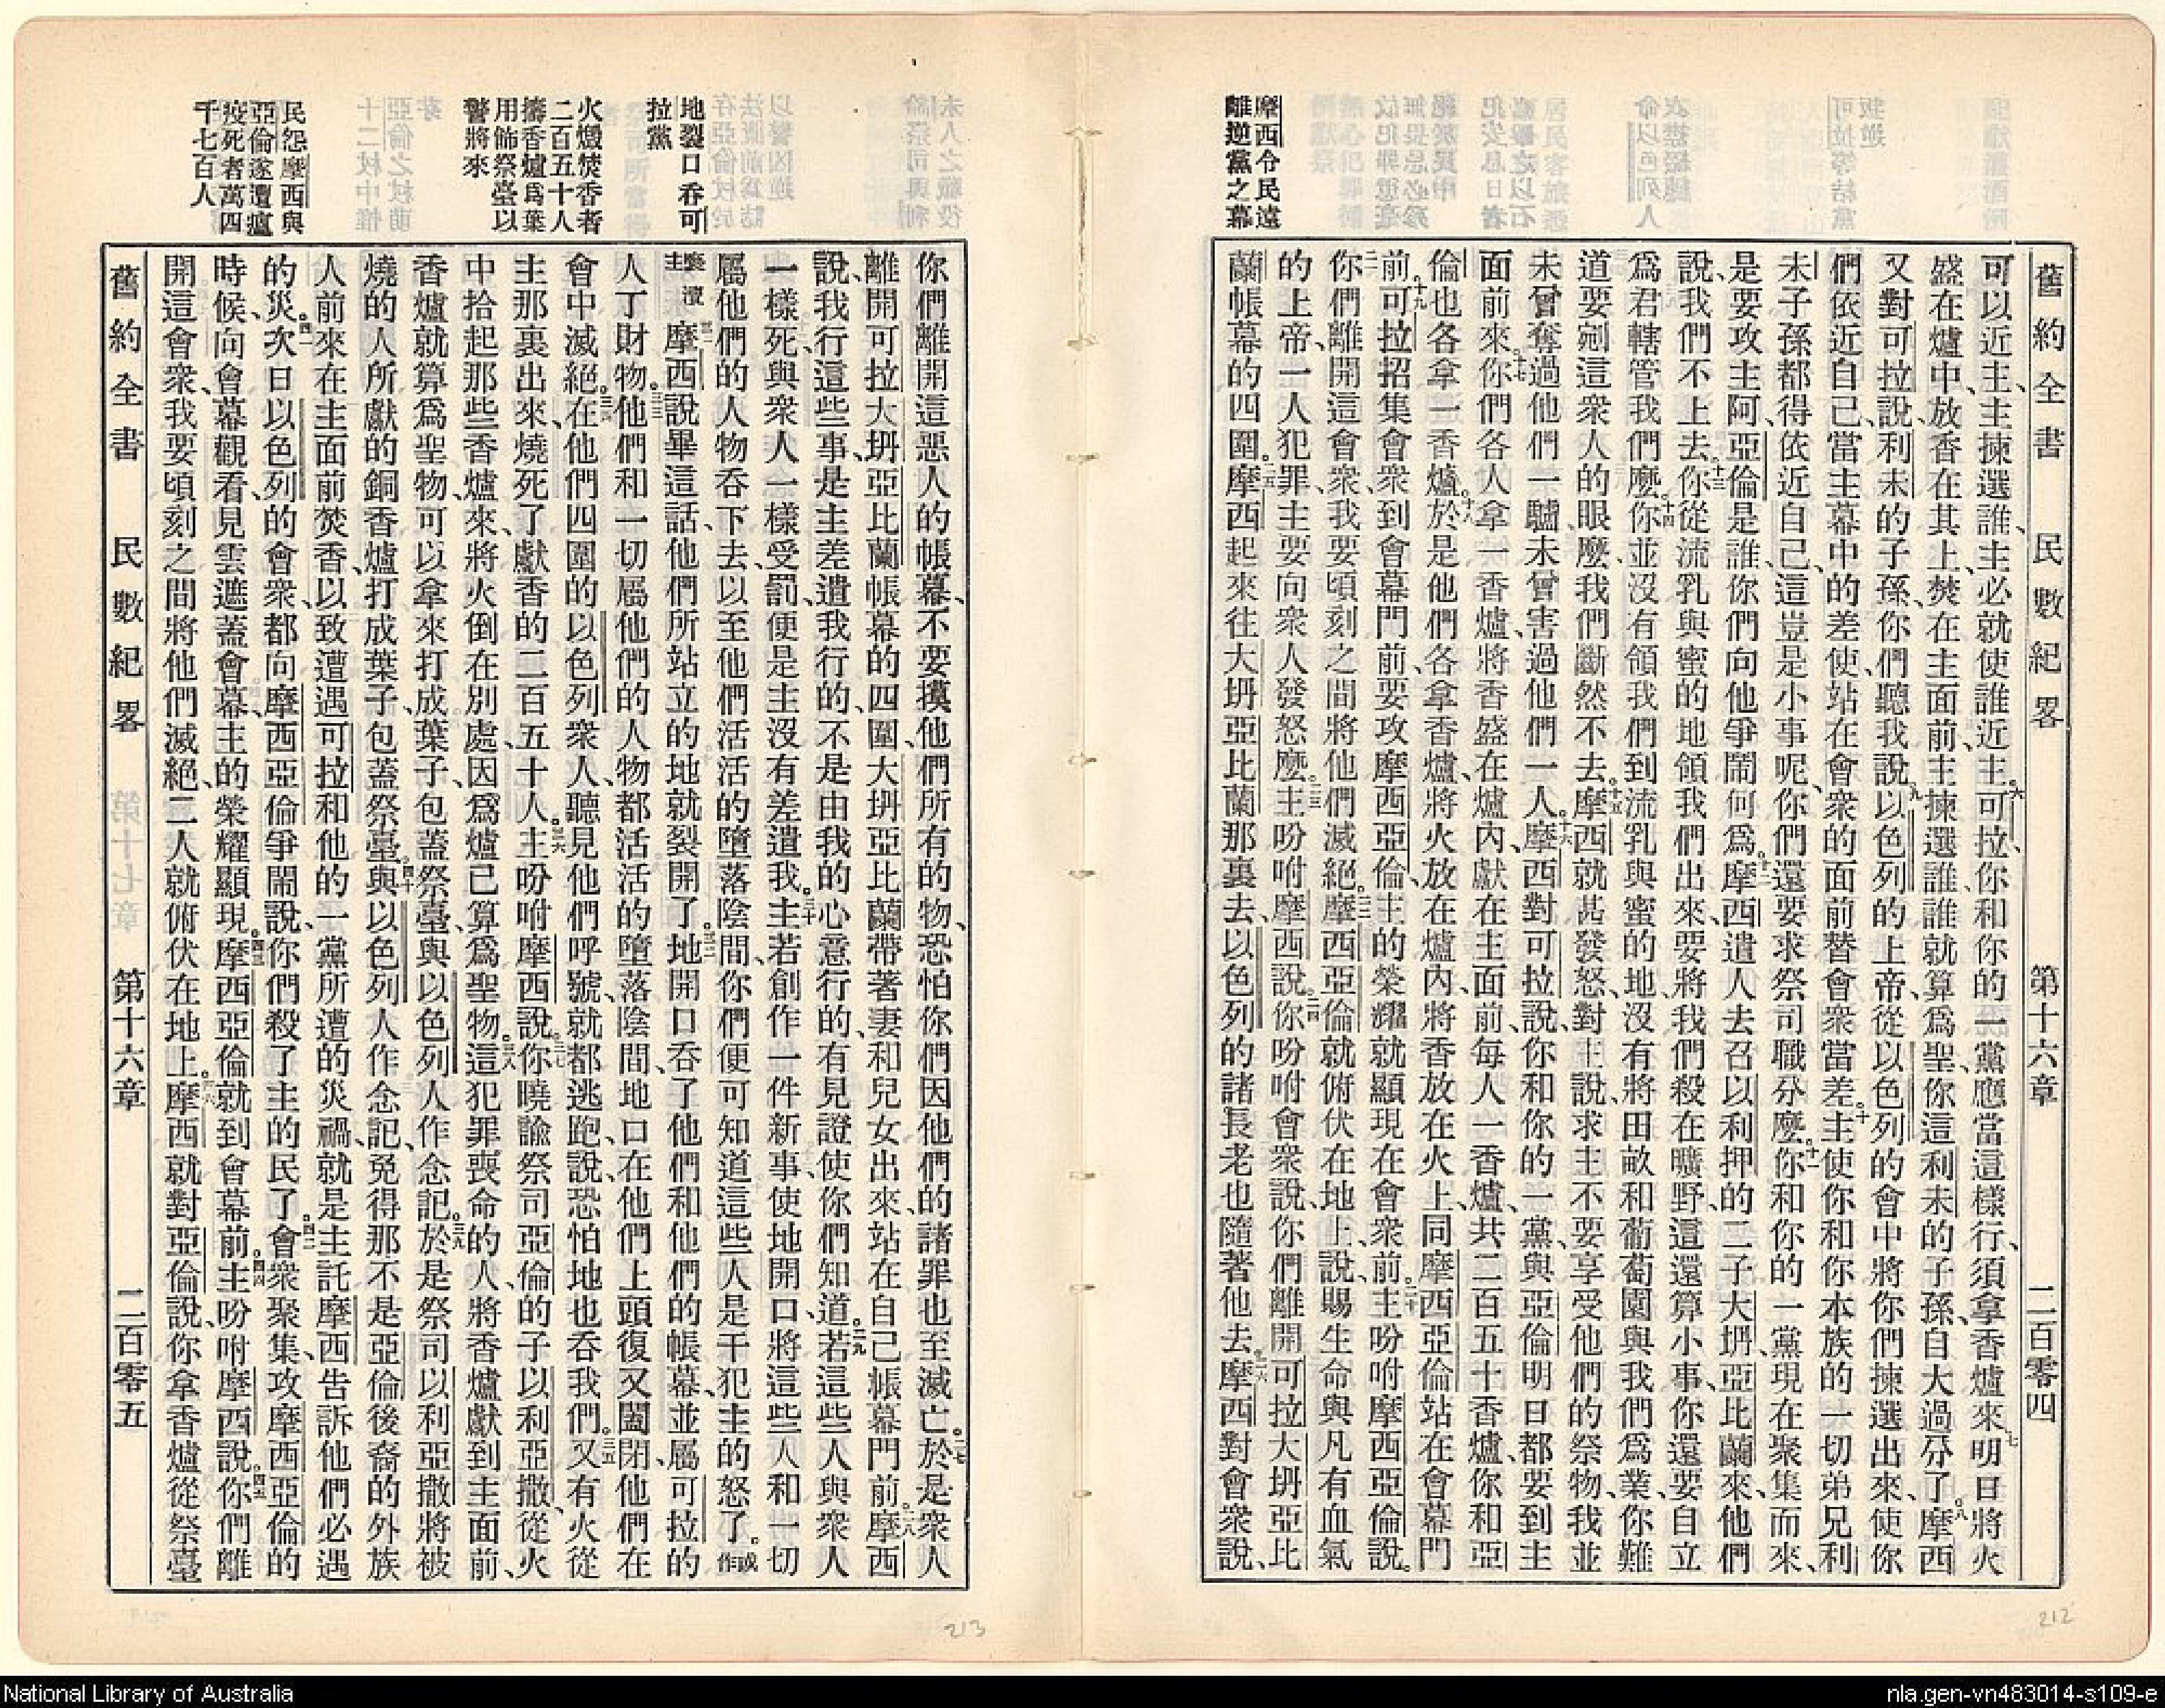 舊約全書 民數紀畧 第十六章 二百零四
可以近主、主揀選誰、主必就使誰近主。六可拉、你和你的一黨應當這樣行、須拿香爐來七明日將火
盛在爐中、放香在其上、焚在主面前、主揀選誰、誰就算爲聖、你這利未的子孫、自大過分了。八摩西
又對可拉說、利未的子孫、你們聽我說、九以色列的上帝、從以色列的會中將你們揀選出來、使你
們依近自己、當主幕中的差使、站在會衆的面前替會衆當差。十主使你和你本族的一切弟兄利
未子孫都得依近自己、這豈是小事呢、你們還要求祭司職分麼。十一你和你的一黨現在聚集而來、
是要攻主阿、亞倫是誰、你們向他爭鬧何爲。十二摩西遣人去召以利押的二子大坍、亞比蘭來、他們
說、我們不上去。十三你從流乳與蜜的地領我們出來、要將我們殺在曠野、這還算小事、你還要自立
爲君轄管我們麼。十四你並沒有領我們到流乳與蜜的地、沒有將田畝和葡萄園與我們爲業、你難
道要剜這衆人的眼麼、我們斷然不去。十五摩西就甚發怒、對主說、求主不要享受他們的祭物、我並
未曾奪過他們一驢、未曾害過他們一人。十六摩西對可拉說、你和你的一黨、與亞倫明日都要到主
面前來。十七你們各人拿一香爐、將香盛在爐內、獻在主面前、每人一香爐、共二百五十香爐、你和亞
倫也各拿一香爐。十八於是他們各拿香爐、將火放在爐內、將香放在火上、同摩西亞倫站在會幕門
前。十九可拉招集會衆到會幕門前、要攻摩西亞倫、主的榮耀就顯現在會衆前。二十主吩咐摩西亞倫說。
二一你們離開這會衆、我要頃刻之間將他們滅絕。二二摩西亞倫就俯伏在地上、說、賜生命與凡有血氣
的上帝、一人犯罪、主要向衆人發怒麼。二三主吩咐摩西說、二四你吩咐會衆說、你們離開可拉大坍亞比
蘭帳幕的四圍。二五摩西起來往大坍亞比蘭那裏去、以色列的諸長老也隨著他去。二六摩西對會衆說、
摩西令民遠
離逆黨之幕
你們離開這惡人的帳幕、不要摸他們所有的物、恐怕你們因他們的諸罪也至滅亡。二七於是衆人
離開可拉大坍亞比蘭帳幕的四圍、大坍亞比蘭帶著妻和兒女出來、站在自己帳幕門前。二八摩西
說、我行這些事、是主差遣我行的、不是由我的心意行的、有見證使你們知道。二九若這些人與衆人
一樣死、與衆人一樣受罰、便是主沒有差遣我。三十主若創作一件新事、使地開口、將這些人和一切
屬他們的人物吞下去、以至他們活活的墮落陰間、你們便可知道這些人是干犯主的怒了。或作
褻瀆主三一摩西說畢這話、他們所站立的地就裂開了。三二地開口吞了他們和他們的帳幕、並屬可拉的
人丁財物。三三他們和一切屬他們的人物、都活活的墮落陰間、地口在他們上頭復又闔閉、他們在
會中滅絕。三四在他們四圍的以色列衆人、聽見他們呼號、就都逃跑、說、恐怕地也吞我們。三五又有火從
主那裏出來、燒死了獻香的二百五十人。三六主吩咐摩西說、三七你曉諭祭司亞倫的子以利亞撒、從火
中拾起那些香爐來、將火倒在別處、因爲爐已算爲聖物。三八這犯罪喪命的人、將香爐獻到主面前、
香爐就算爲聖物、可以拿來打成葉子、包蓋祭臺、與以色列人作念記。三九於是祭司以利亞撒將被
燒的人所獻的銅香爐打成葉子、包蓋祭臺。四十與以色列人作念記、免得那不是亞倫後裔的外族
人前來在主面前焚香、以致遭遇可拉和他的一黨所遭的災禍、就是主託摩西告訴他們必遇
的災。四一次日以色列的會衆、都向摩西亞倫爭鬧說、你們殺了主的民了。四二會衆聚集、攻摩西亞倫的
時候、向會幕觀看、見雲遮蓋會幕、主的榮耀顯現。四三摩西亞倫就到會幕前。四四主吩咐摩西說。四五你們離
開這會衆、我要頃刻之間將他們滅絕、二人就俯伏在地上。四六摩西就對亞倫說、你拿香爐、從祭臺
舊約全書 民數紀畧 第十六章 二百零五
地裂口吞可
拉黨
火燬焚香者
二百五十人
擣香爐爲葉
用飾祭臺以
警將來
民怨摩西與
亞倫遂遭瘟
疫死者萬四
千七百人
213
212
National Library of Australia
nla.gen-vn483014-s109-e